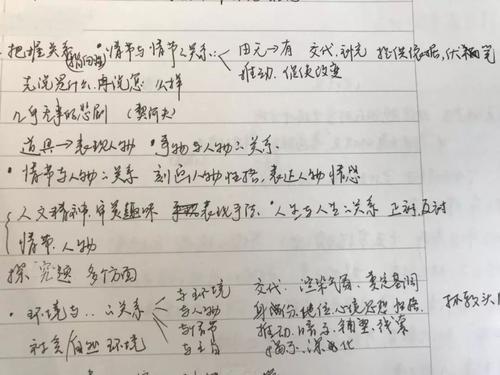 把握关系 指向性 ·情节与情节之关系: 由元→有 交代,补充 提供依据,伏笔
推动,促使改变
先说是什么,再说怎么样
几乎无事的悲剧 (契诃夫)
道具→表现人物 ·事物与人物之关系.
·情节与人物之关系 刻画人物性格,表达人物情感
人文精神,审美趣味 表现手法 ·人生与人生之关系 正衬,反衬
情节.人物
探究题 多个方面
·环境与..之关系
与环境 交代,渲染气氛,奠定基调
与人物 身份,地位,心境思想 性格.
与情节 推动,暗示,铺垫,线索
与主旨 揭示,深化
社会/自然 环境
林教头